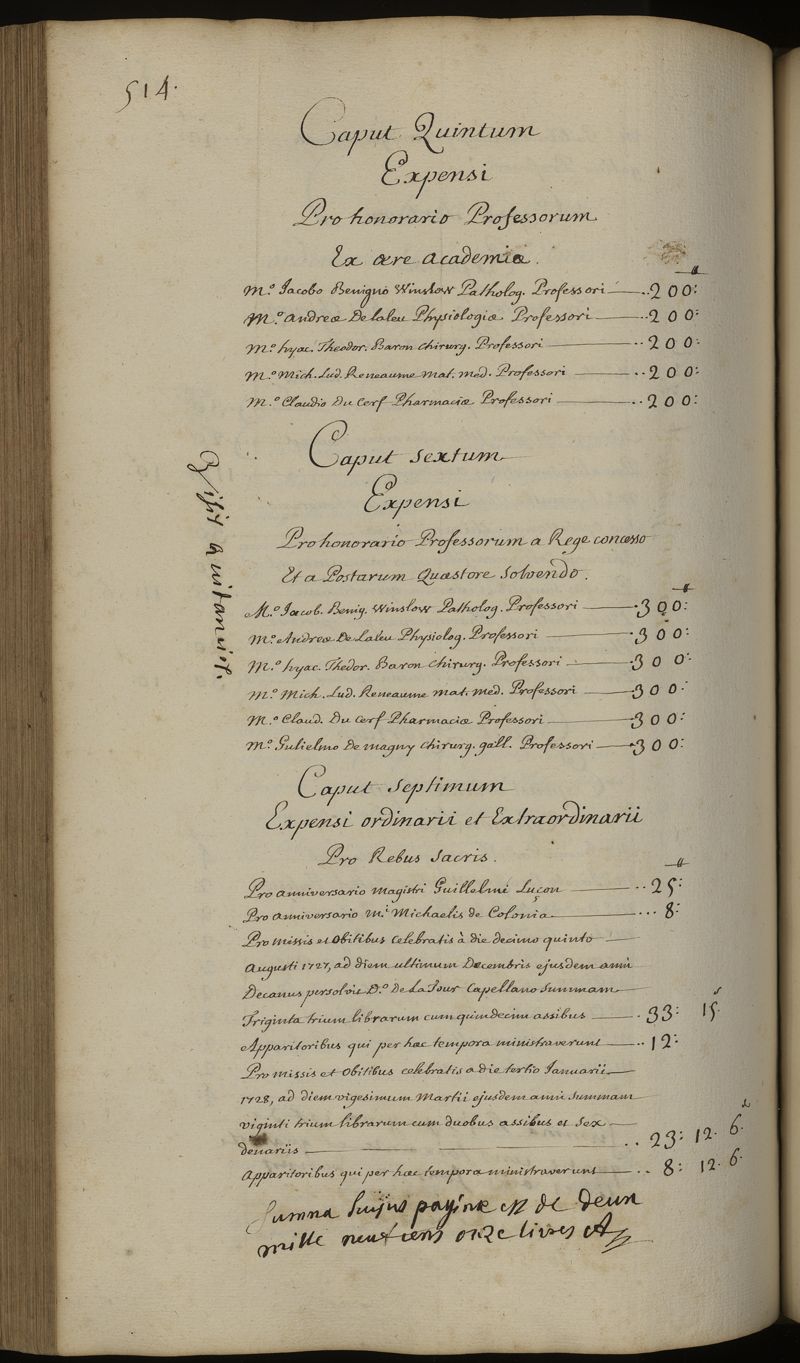 514.
Caput Quintum
Expensi
Pro honorario Professorum
Ex ære Academiæ.
tt
M.º Jacobo Benigno Winslow Patholog. Professori ..200:
M.º Andreæ De Laleu Physiologiæ Professori ..200:
M.º hyac. Theodor. Baron chirurg. Professori ..200:
M.º Mich. Lud. Reneaume mat. med. Professori ..200:
M.º Claudio Du Cerf Pharmaciæ Professori ..200:
Caput sextum
Expensi
Pro honorario Professorum a Rege concesso
Et a Postarum Quæstore Solvendo.
tt
M.º Jacob. Benig. Winslow Patholog. Professori .300:
M.º Andreæ De Laleu Physiolog. Professori .300:
M.º hyac. Thedor. Baron chirurg. Professori .300:
M.º Mich. Lud. Reneaume mat. med. Professori .300:
M.º Claud. Du Cerf Pharmaciæ Professori .300:
M.º Gulielmo De magny chirurg. gall. Professori .300:
quitanvit.
Caput septimum
Expensi ordinarii et Extraordinarii
Pro Rebus Sacris.
tt
Pro anniversario magistri Guillelmi Luçon ..25:
Pro anniversario M.i Michaelis de Colonia ...8:
Pro missis et obitibus celebratis à die decimo quinto
Augusti 1727, ad diem ultimum Decembris ejusdem anni
Decanus persolvit D.º De La Tour Capellano Summam
s
Triginta trium librarum cum quindecim assibus .33: 15.
Apparitoribus qui per hæc tempora ministraverunt ..12:
Pro missis et obitibus celebratis a die tertio Januarii
1728, ad diem vigesimum Martii ejusdem anni summam
viginti trium librarum cum duobus assibus et sex
d
denariis ..23: 12. 6.
Apparitoribus qui per hæc tempora ministraverunt ..8: 12. 6.
Summa hujus paginæ est de deux
mille neuf cens onze livres et